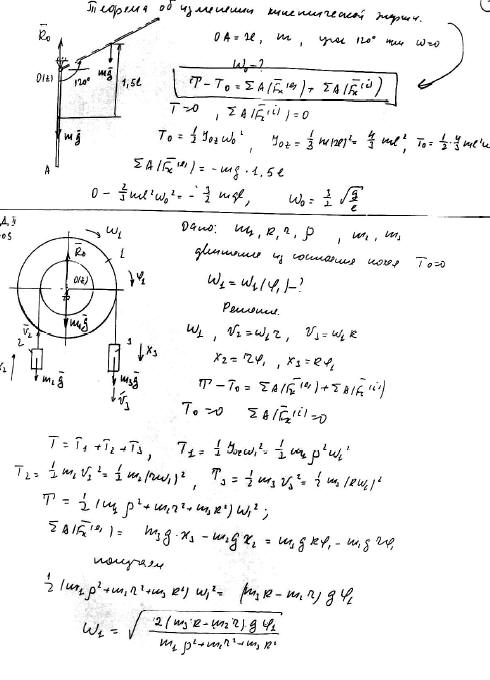 Теорема об изменении кинетической энергии.
OA=2l, m, угол 120° при ω=0
ω₀ - ?
T - T₀ = ΣA(F̄ₖ⁽ᵉ⁾) + ΣA(F̄ₖ⁽ⁱ⁾)
T=0, ΣA(F̄ₖ⁽ⁱ⁾)=0
T₀ = 1/2 J₀z ω₀², J₀z = 1/3 m(2l)² = 4/3 ml², T₀ = 1/2 · 4/3 ml²ω
ΣA(F̄ₖ⁽ᵉ⁾) = -mg·1,5l
0 - 2/3 ml²ω₀² = -3/2 mgl, ω₀ = 3/2 √(g/l)
R̄₀
O(z)
120°
mḡ
1,5l
mḡ
A
Дано: m₁, R, r, ρ, m₂, m₃
движение из состояния покоя T₀=0
ω₁ = ω₁(φ₁) - ?
Решение.
ω₁, V₂ = ω₁r, V₃ = ω₁R
x₂ = rφ₁, x₃ = Rφ₁
T - T₀ = ΣA(F̄ₖ⁽ᵉ⁾) + ΣA(F̄ₖ⁽ⁱ⁾)
T₀ = 0 ΣA(F̄ₖ⁽ⁱ⁾) = 0
ω₁
1
R̄₀
O(z)
φ₁
m₁ḡ
V̄₂
2
3
x₃
x₂
m₂ḡ
m₃ḡ
V̄₃
T = T₁ + T₂ + T₃, T₁ = 1/2 J₀zω₁² = 1/2 m₁ρ²ω₁²
T₂ = 1/2 m₂V₂² = 1/2 m₂(rω₁)², T₃ = 1/2 m₃V₃² = 1/2 m₃(Rω₁)²
T = 1/2 (m₁ρ² + m₂r² + m₃R²) ω₁²;
ΣA(F̄ₖ⁽ᵉ⁾) = m₃g·x₃ - m₂g x₂ = m₃g Rφ₁ - m₂g rφ₁
получаем
1/2 (m₁ρ² + m₂r² + m₃R²) ω₁² = (m₃R - m₂r) g φ₁
ω₁ = √(2(m₃R - m₂r) g φ₁ / (m₁ρ² + m₂r² + m₃R²))